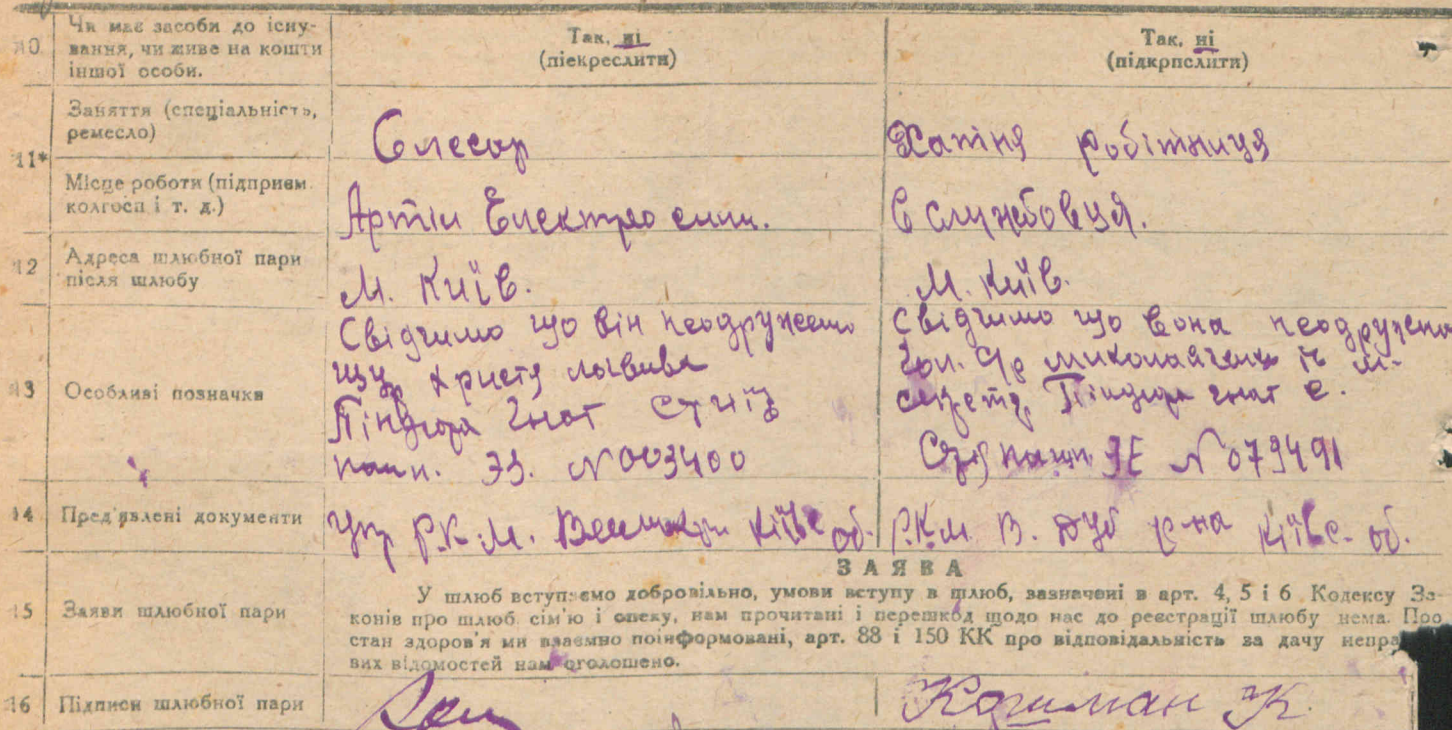 10
Чи має засоби до існу-
вання, чи живе на кошти
іншої особи.
Так, ні
(піекреслити)
Так, ні
(підкрпслити)
11*
Заняття (спеціальність,
ремесло)
Слесар
Хатня робітниця
Місце роботи (підприєм.
колгосп і т. д.)
Артіл Електро
Є службовця.
12
Адреса шлюбної пари
після шлюбу
М. Київ.
М. Київ.
13
Особливі позначки
Свідчимо що він неодружено
Христя
Гнат
пашп. ЭЗ. №003400
Свідчимо що вона неодружена
гол.
секрет. Гнат Є.
пашп. ЭЕ №079491
14
Пред'явлені документи
Р.К.М. Київс об.
Р.К.М. В. Дуб р-на Київс. об.
ЗАЯВА
15
Заяви шлюбної пари
У шлюб вступаємо добровільно, умови вступу в шлюб, зазначені в арт. 4, 5 і 6 Кодексу За-
конів про шлюб, сім'ю і опеку, нам прочитані і перешкод щодо нас до реєстрації шлюбу нема. Про
стан здоров'я ми взаємно поінформовані, арт. 88 і 150 КК про відповідальність за дачу непра
вих відомостей нам оголошено.
16
Підписи шлюбної пари
Кошман К.